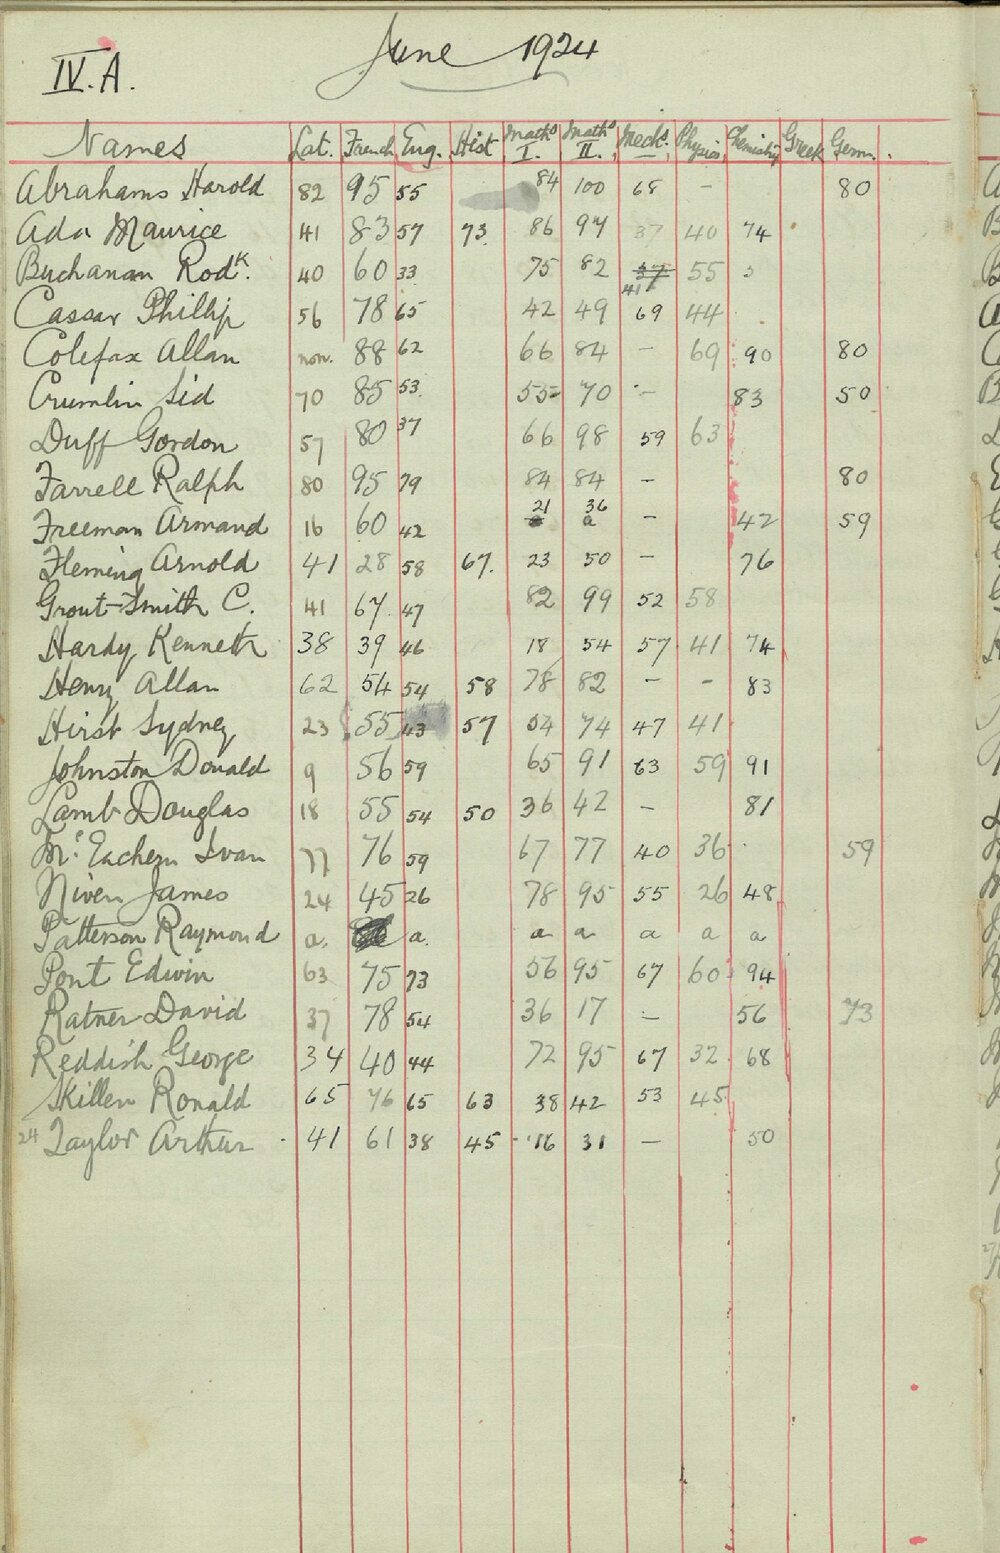 June 1924
IV.A.
Names Lat. French Eng. Hist Maths I. Maths II. Mechs. Physics Chemistry Greek Germ.
Abrahams Harold 82 95 55 84 100 68 - 80
Ada Maurice 41 83 57 73 86 97 37 40 74
Buchanan Rodk. 40 60 33 75 82 37 41 55
Cassar Phillip 56 78 65 42 49 69 44
Colefax Allan non. 88 62 66 84 - 69 90 80
Crumlin Sid 70 85 53 55 70 - 83 50
Duff Gordon 57 80 37 66 98 59 63
Farrell Ralph 80 95 79 84 84 - 80
Freeman Armand 16 60 42 21 a 36 a - 42 59
Fleming Arnold 41 28 58 67. 23 50 - 76
Grout-Smith C. 41 67 47 82 99 52 58
Hardy Kenneth 38 39 46 18 54 57 41 74
Henry Allan 62 54 54 58 78 82 - - 83
Hirst Sydney 23 55 43 57 54 74 47 41
Johnston Donald 9 56 59 65 91 63 59 91
Lamb Douglas 18 55 54 50 36 42 - 81
McEachern Ivan 77 76 59 67 77 40 36 59
Niven James 24 45 26 78 95 55 26 48
Patterson Raymond a. a. a a a a a
Pont Edwin 63 75 73 56 95 67 60 94
Ratner David 37 78 54 36 17 - 56 73
Reddish George 34 40 44 72 95 67 32 68
Skillen Ronald 65 76 65 63 38 42 53 45
24 Taylor Arthur 41 61 38 45 16 31 - 50